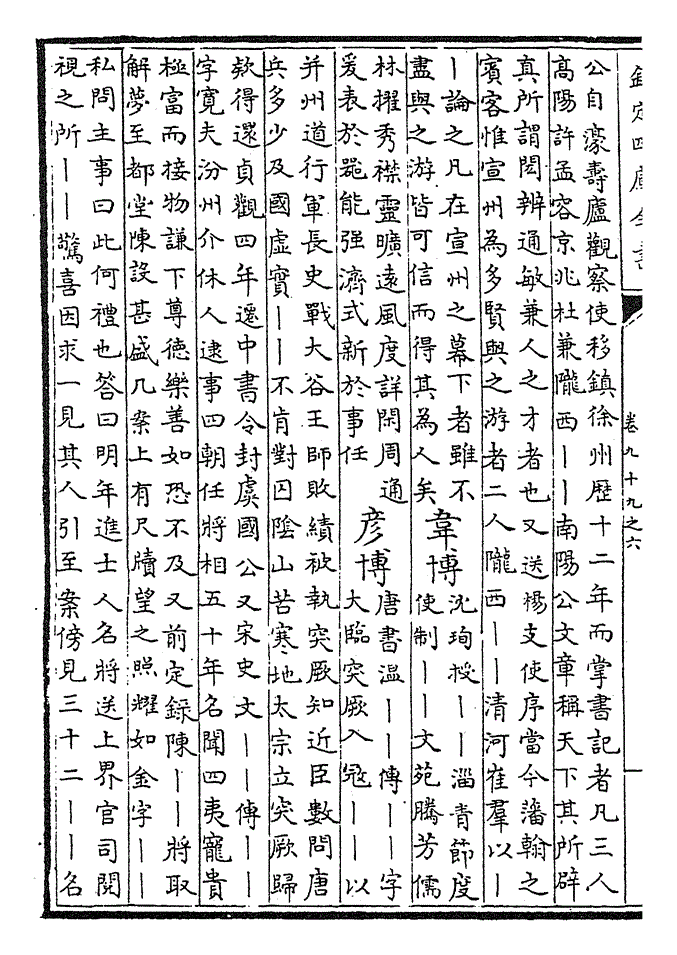 欽定四庫全書
卷九十九之六
公自濠壽廬觀察使移鎮徐州歷十二年而掌書記者凡三人
高陽許孟容京兆杜兼隴西——南陽公文章稱天下其所辟
真所謂閎辨通敏兼人之才者也又送楊支使序當今藩翰之
賓客惟宣州為多賢與之游者二人隴西——清河崔羣以—
—論之凡在宣州之幕下者雖不
盡與之游皆可信而得其為人矣
韋博
沈珣授——淄青節度
使制——文苑騰芳儒
林擢秀襟靈曠遠風度詳閑周通
爰表於噐能强濟式新於事任
彥博
唐書温——傳——字
大臨突厥入冦——以
并州道行軍長史戰大谷王師敗績被執突厥知近臣數問唐
兵多少及國虛實——不肯對囚陰山苦寒地太宗立突厥歸
欵得還貞觀四年遷中書令封虞國公又宋史文——傳——
字寛夫汾州介休人逮事四朝任將相五十年名聞四夷寵貴
極富而接物謙下尊德樂善如恐不及又前定録陳——將取
解夢至都堂陳設甚盛几案上有尺牘望之照耀如金字——
私問主事曰此何禮也答曰明年進士人名將送上界官司閱
視之所——驚喜因求一見其人引至案傍見三十二——名